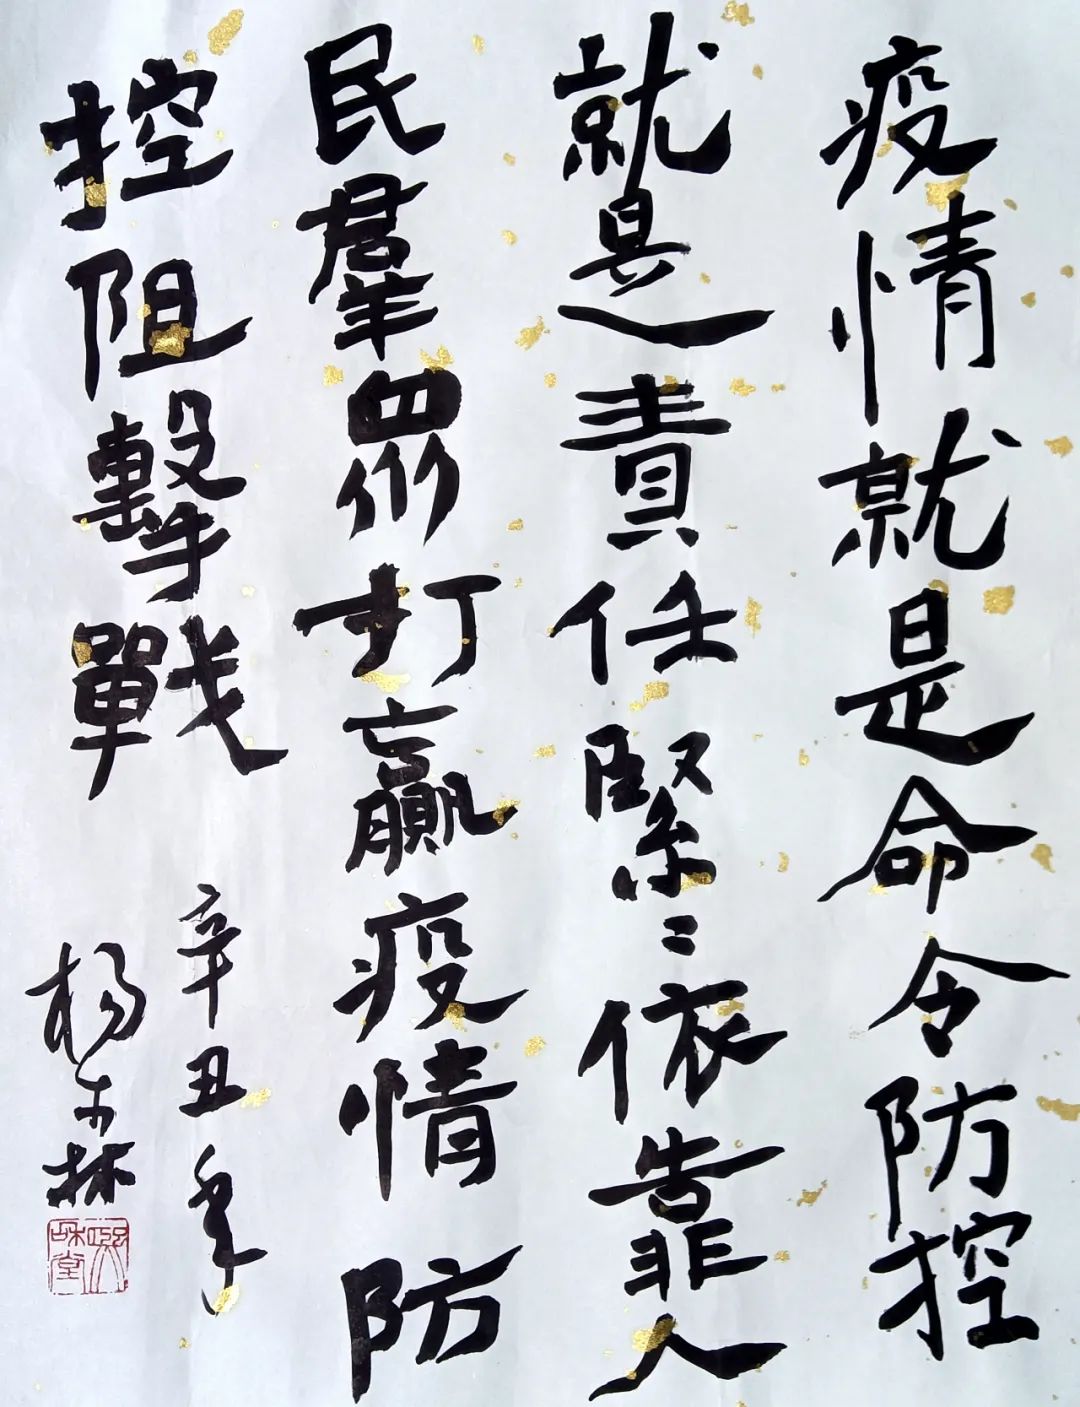 疫情就是命令防控
就是責任緊〻依靠人
民羣眾打贏疫情防
控阻擊戰
辛丑年
楊森